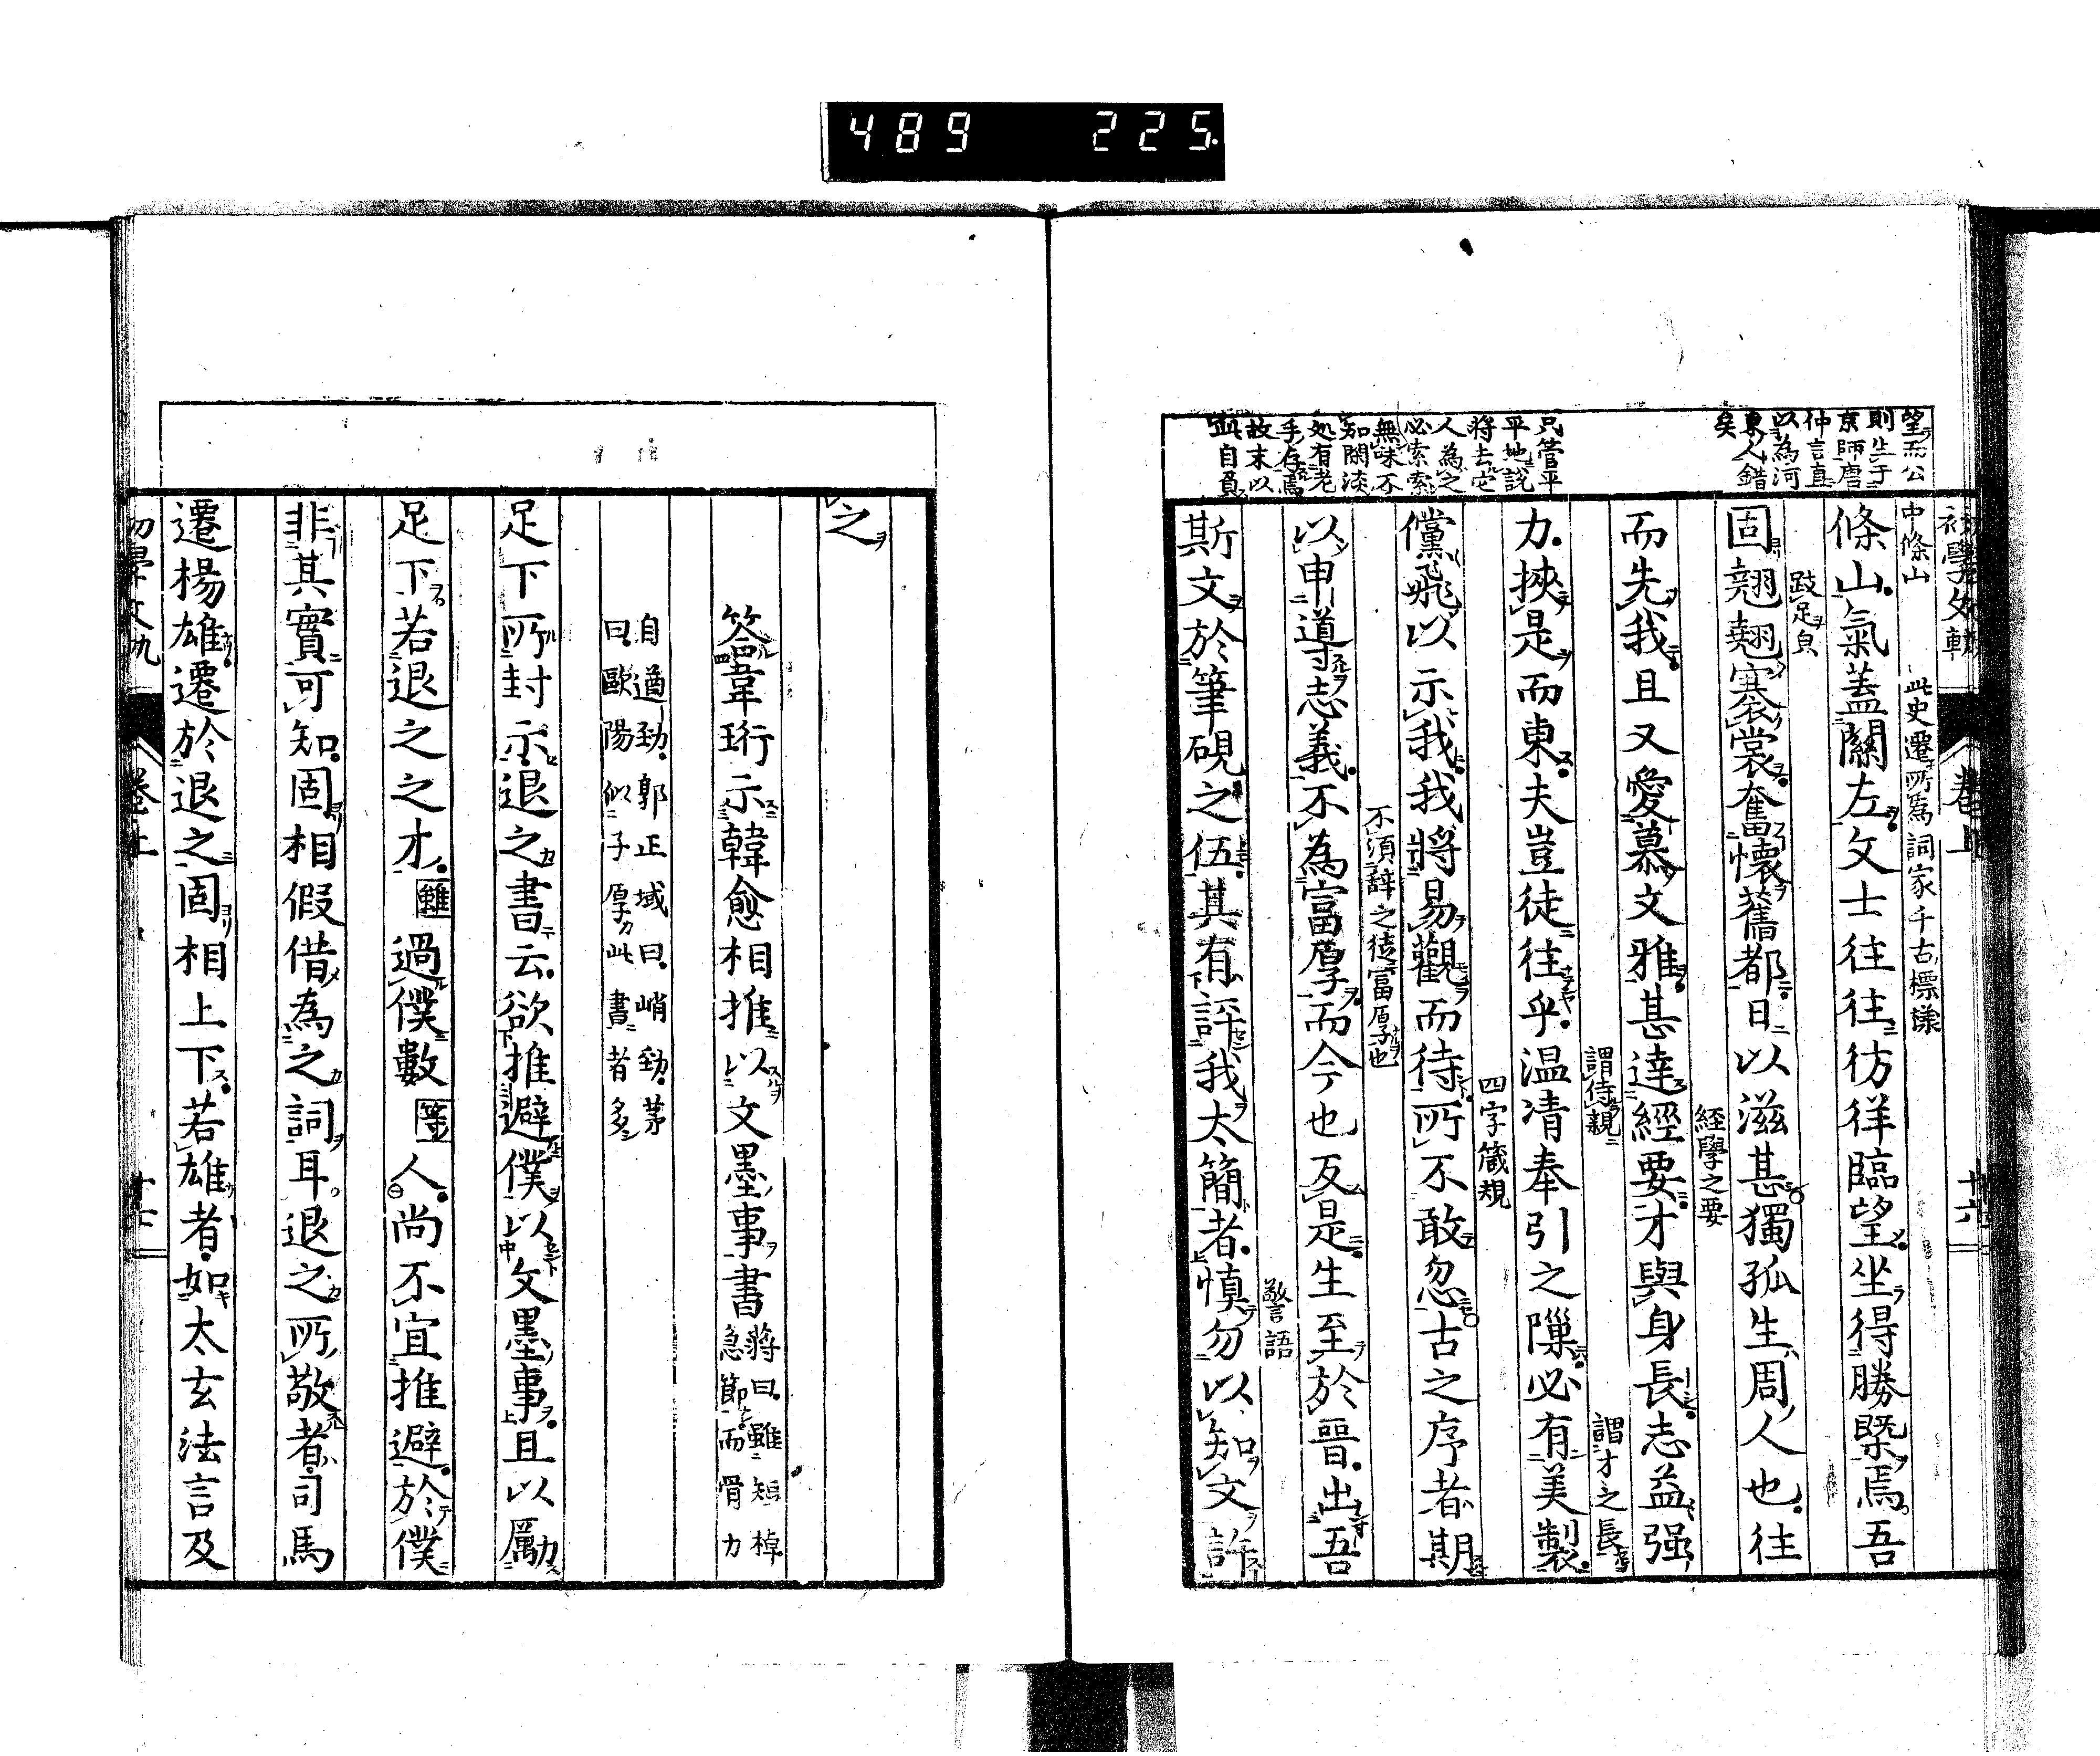 489 225
望而公
則生于
京師唐
仲言直
以為河
東人錯
矣
只管平
平地說
將去定
人為之
必索索
無味不
知閑淡
処有老
手存焉
故末以
自負
初學文軌
卷上
十六
中條山
此史遷所為詞家千古標樣
條山氣蓋關左文士往往彷徉臨望坐得勝槩焉吾
跂足皃
固翹翹褰裳奮懷舊都日以滋甚獨孤生周人也往
經學之要
而先我且又愛慕文雅甚達經要才與身長志益强
謂侍親
謂才之長
力挾是而東夫豈徒往乎温凊奉引之隟必有美製
四字箴規
儻飛以示我我將易觀而待所不敢忽古之序者期
不須辞之徒富厚也
以申導志義不為富厚而今也反是生至於晉出吾
警語
斯文於筆硯之伍其有評我太簡者愼勿以知文許
之
答韋珩示韓愈相推以文墨事書
蔣曰雖短棹
急節而骨力
自遒勁郭正域曰峭勁茅
曰歐陽似子厚此書者多
足下所封示退之書云欲推避僕以文墨事且以勵
足下若退之之才雖過僕數等人尚不宜推避於僕
非其實可知固相假借為之詞耳退之所敬者司馬
遷楊雄遷於退之固相上下若雄者如太玄法言及
初學文軌
卷上
十七